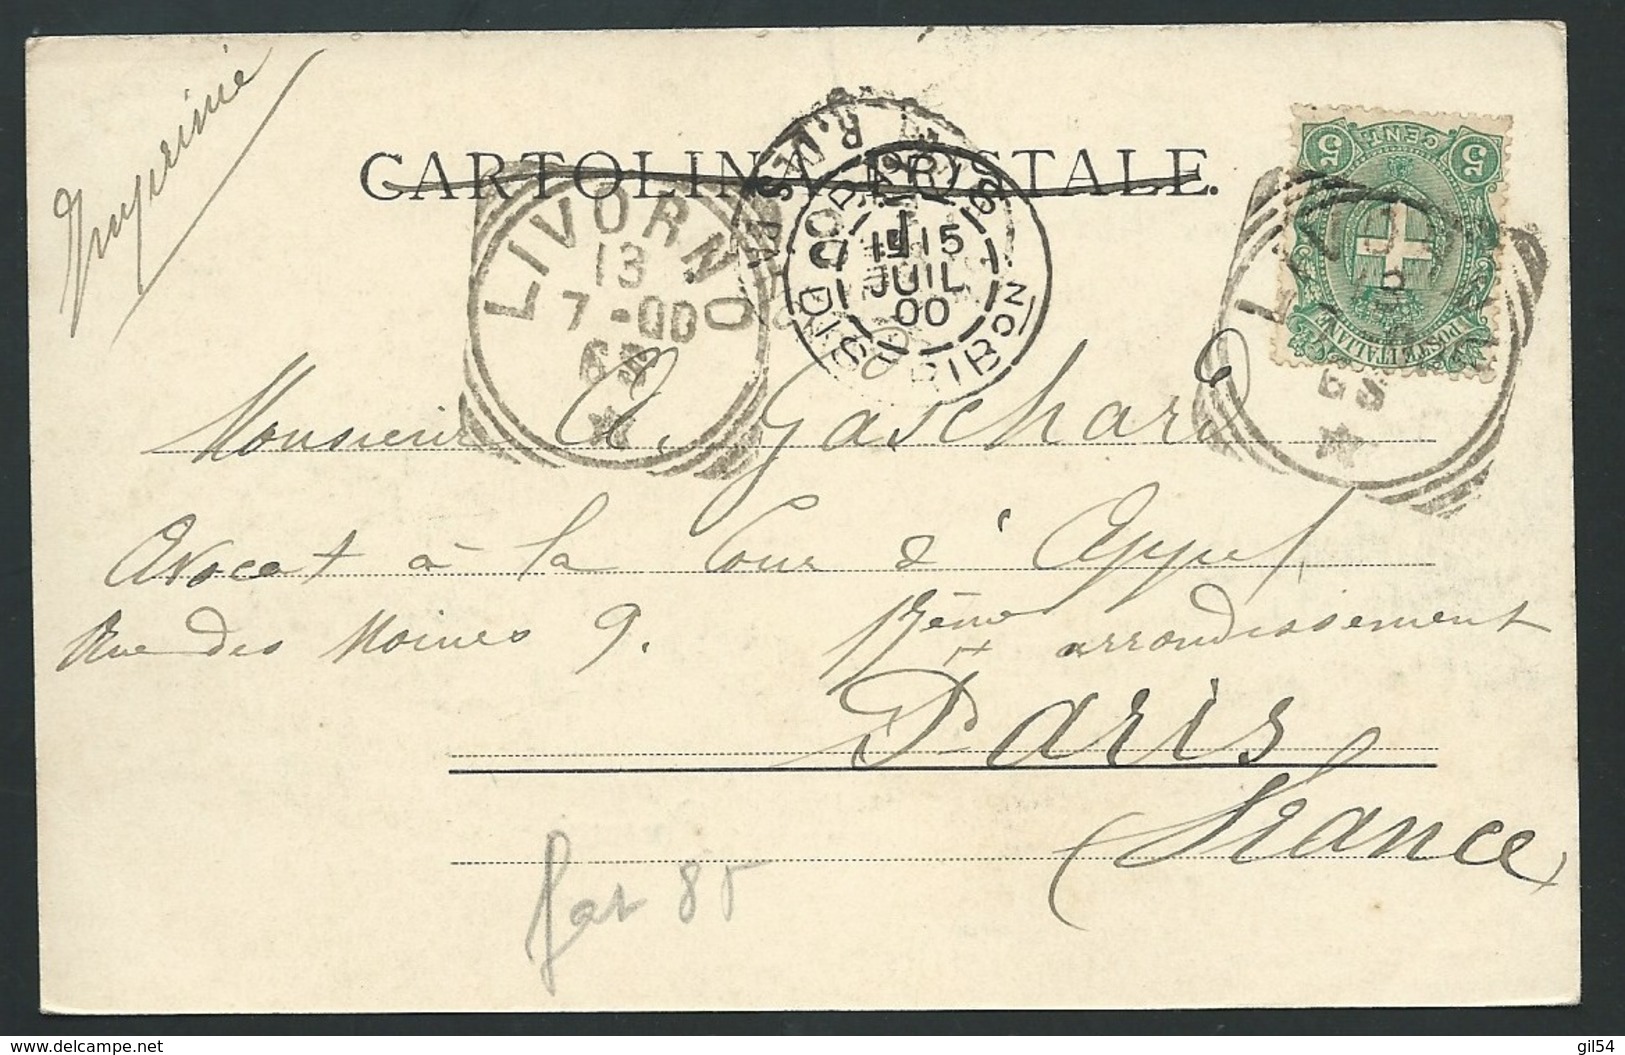 Imprimé
CARTOLINA POSTALE.
LIVORNO
13
7-00
6S
PARIS
15
JUIL
00
DISTRIBON
5 CENT. 5
POSTE ITALIANE
Monsieur A. Gaschard
Avocat à la Cour d'Appel
Rue des Moines 9. 17ème arrondissement
Paris
France
85
delcampe.net
gil54